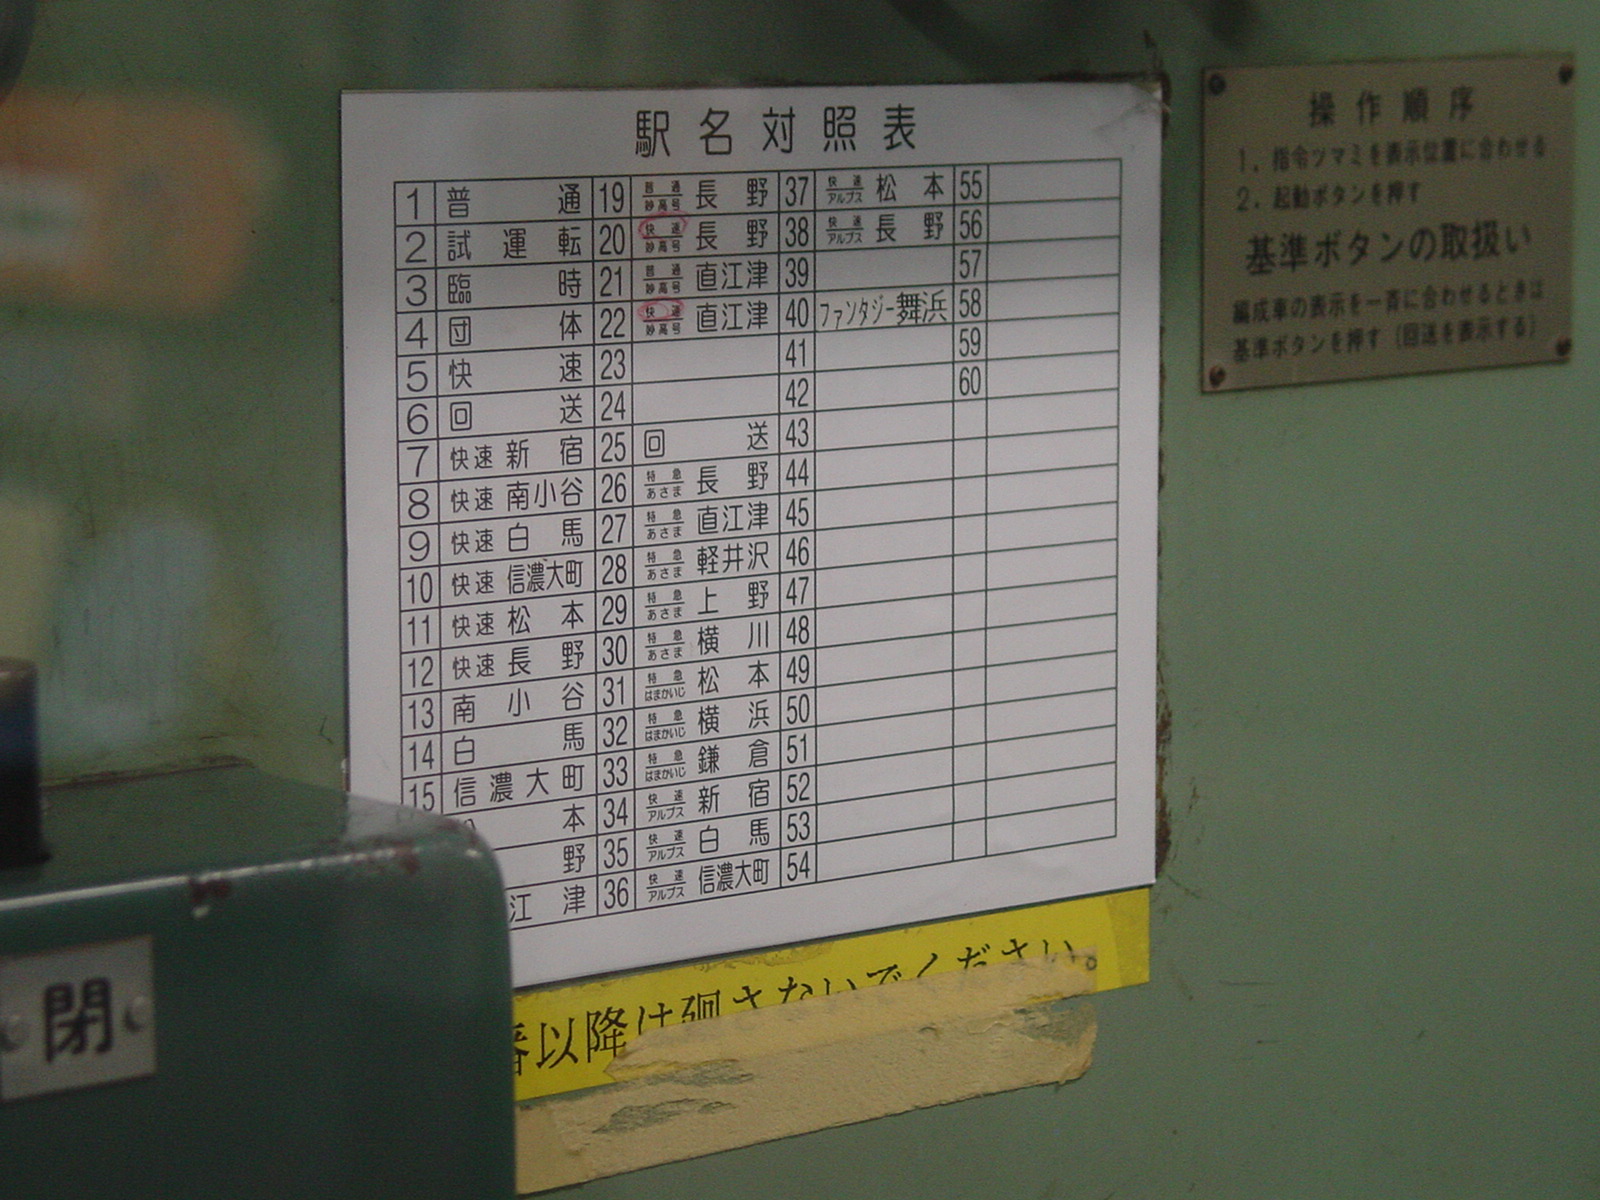 駅名対照表
1 普通 19 普通 妙高号 長野 37 快速 アルプス 松本 55
2 試運転 20 快速 妙高号 長野 38 快速 アルプス 長野 56
3 臨時 21 普通 妙高号 直江津 39 57
4 団体 22 快速 妙高号 直江津 40 ファンタジー舞浜 58
5 快速 23 41 59
6 回送 24 42 60
7 快速 新宿 25 回送 43
8 快速 南小谷 26 特急 あさま 長野 44
9 快速 白馬 27 特急 あさま 直江津 45
10 快速 信濃大町 28 特急 あさま 軽井沢 46
11 快速 松本 29 特急 あさま 上野 47
12 快速 長野 30 特急 あさま 横川 48
13 南小谷 31 特急 はまかいじ 松本 49
14 白馬 32 特急 はまかいじ 横浜 50
15 信濃大町 33 特急 はまかいじ 鎌倉 51
本 34 快速 アルプス 新宿 52
野 35 快速 アルプス 白馬 53
江津 36 快速 アルプス 信濃大町 54
番以降は廻さないでください。
操作順序
1. 指令ツマミを表示位置に合わせる
2. 起動ボタンを押す
基準ボタンの取扱い
編成車の表示を一斉に合わせるときは
基準ボタンを押す(回送を表示する)
閉